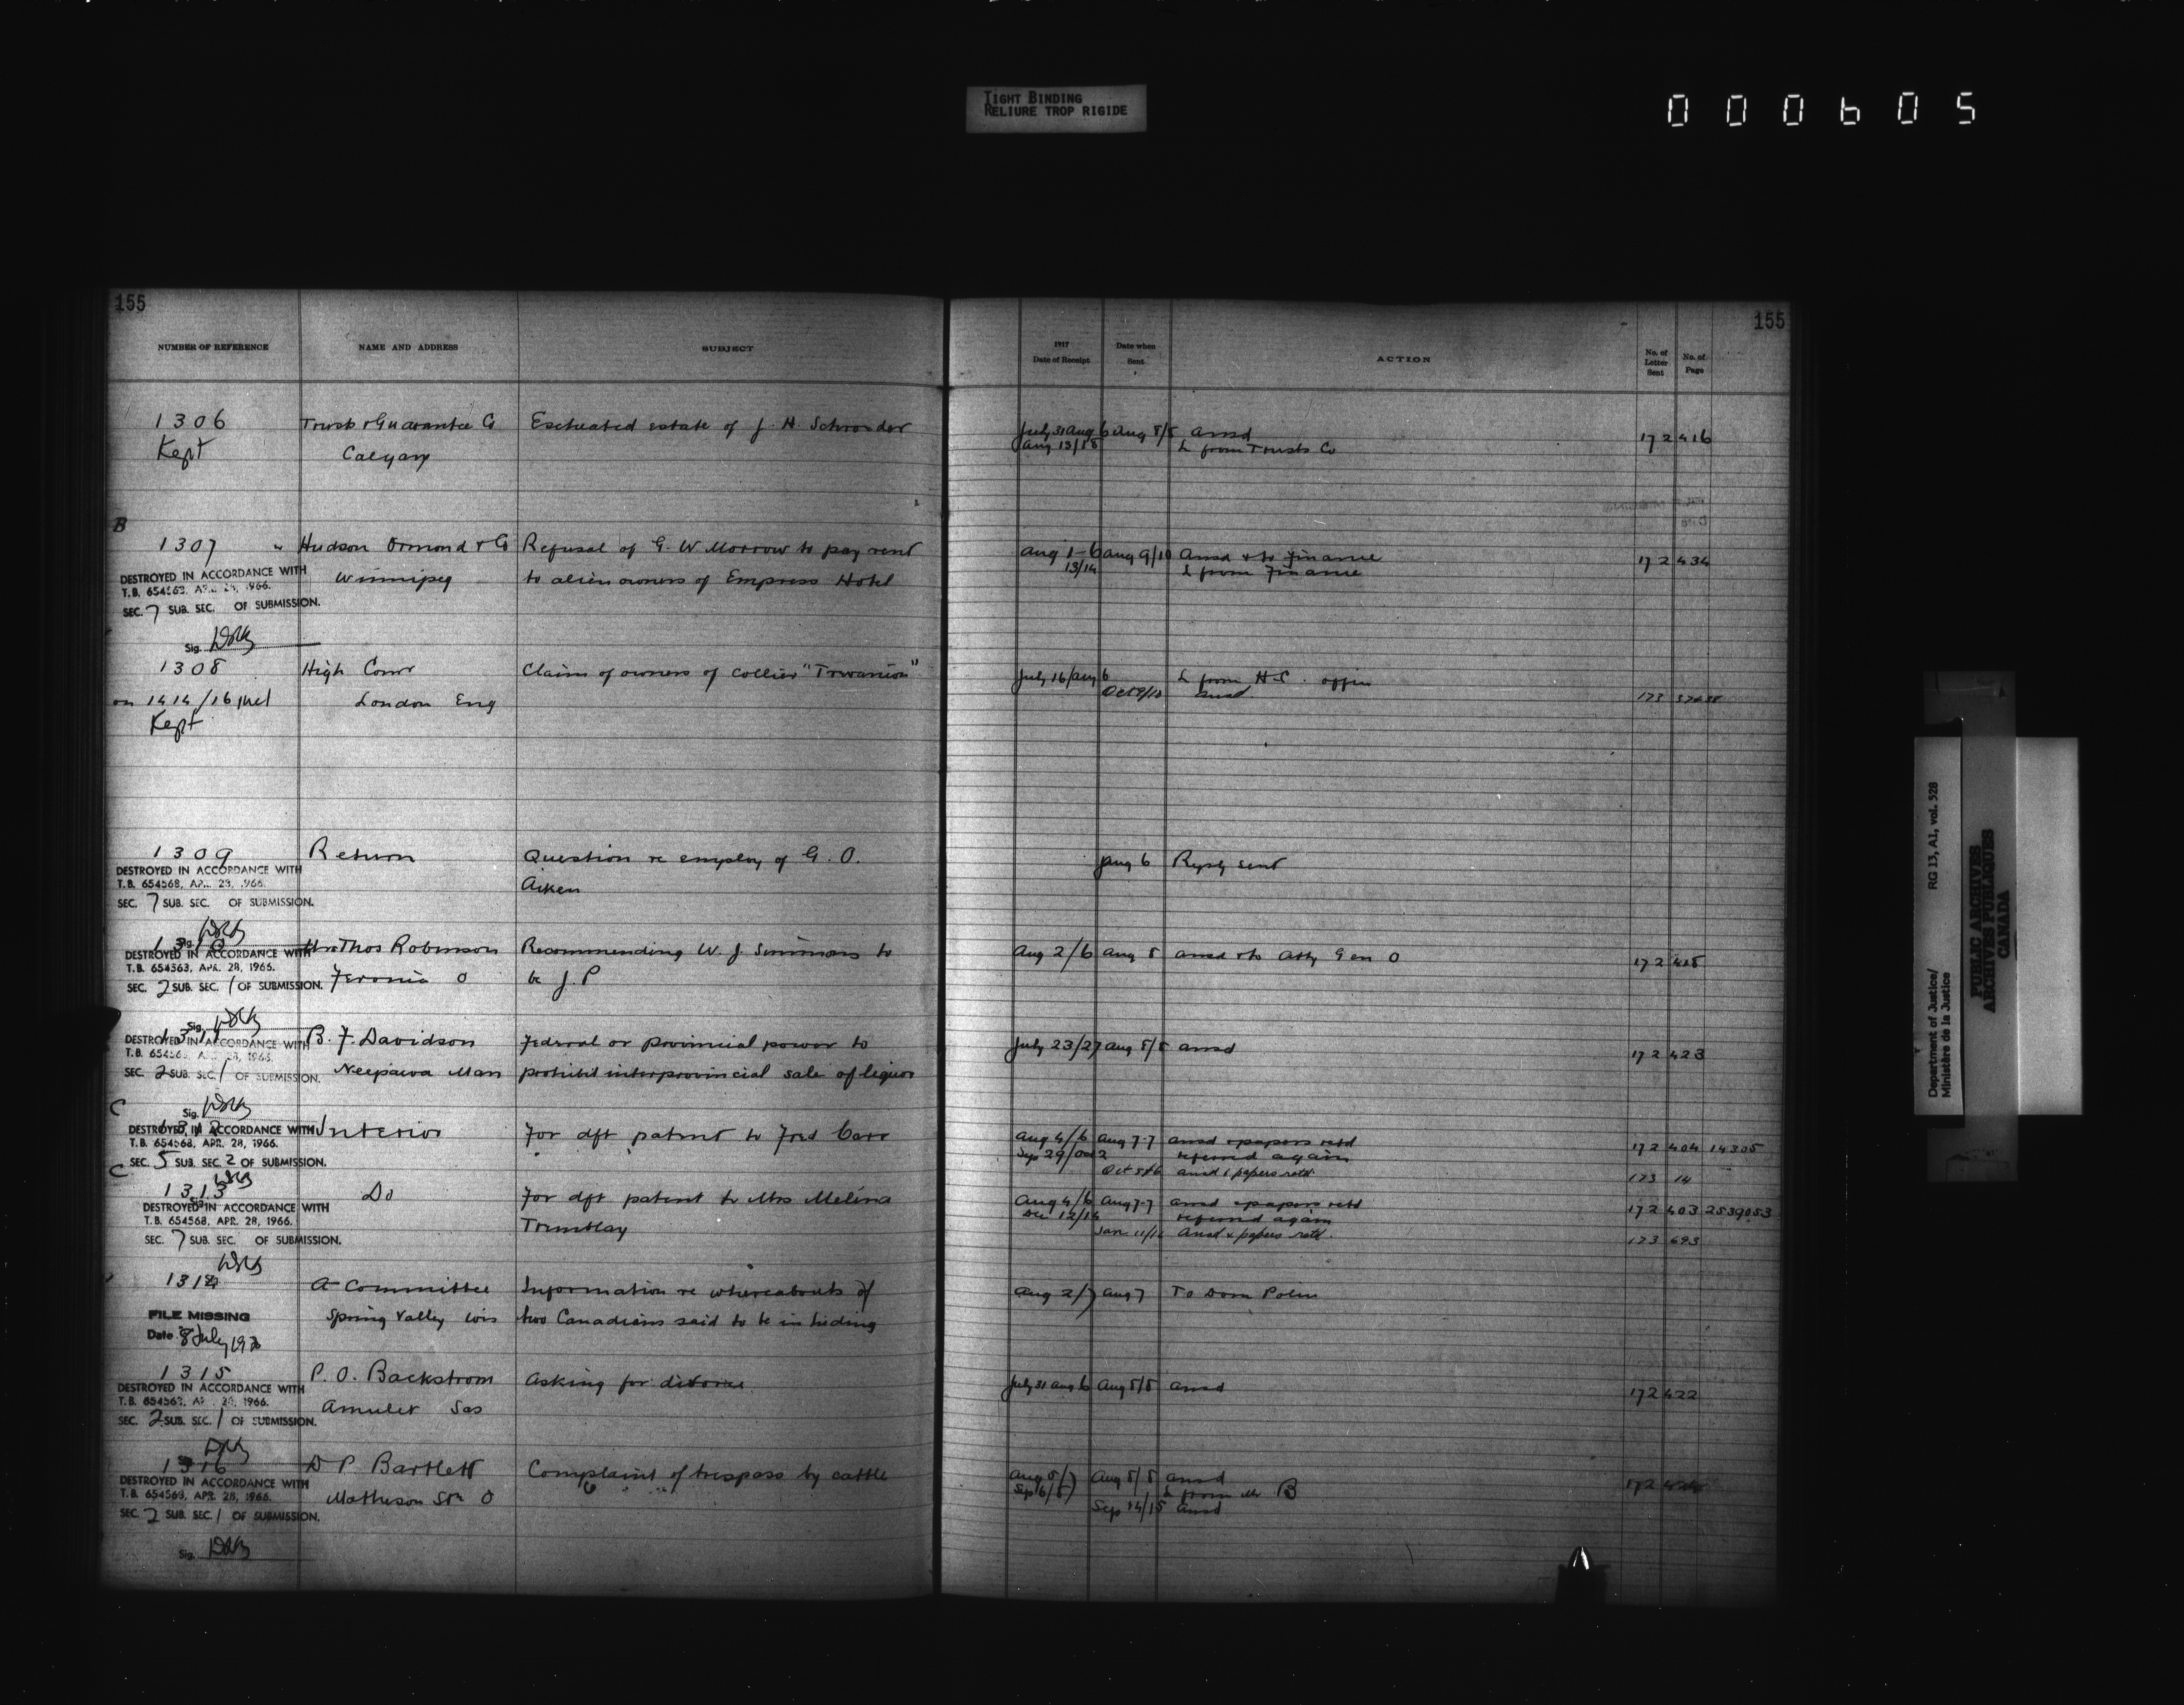 TIGHT BINDING
RELIURE TROP RIGIDE
000605
155
155
NUMBER OF REFERENCE
NAME AND ADDRESS
SUBJECT
1917
Date of Receipt
Date when
Sent
ACTION
No. of
Letter
Sent
No. of
Page
1306 Trusts & Guarantee Co Escheated estate of J. H. Schroeder July 31 Aug 6 Aug 8/8 ansd 172 416
Kept Calgary Aug 13/18 L from Trusts Co
B
1307 Hudson Ormond & Co Refusal of G. W Morrow to pay rent Aug 1-6 Aug 9/10 Ansd & to Finance 172 434
Winnipeg to alien owners of Empress Hotel 13/14 L from Finance
DESTROYED IN ACCORDANCE WITH
T.B. 654563, APR. 28, 1966.
SEC. 7 SUB. SEC. OF SUBMISSION.
Sig.
1308 High Comr Claim of owners of collier July 16/Aug 6 L from H.C. office
on 1414/16 London Eng Oct 9/10 ansd 173
Kept
1309 Return Question re employ of G. O. Aug 6 Reply sent
Aiken
DESTROYED IN ACCORDANCE WITH
T.B. 654568, APR. 28, 1966.
SEC. 7 SUB. SEC. OF SUBMISSION.
Sig.
1310 Thos Robinson Recommending W. J. Simmons to Aug 2/6 Aug 8 ansd & to Atty Gen O 172
O be J. P
DESTROYED IN ACCORDANCE WITH
T.B. 654563, APR. 28, 1966.
SEC. 2 SUB. SEC. 1 OF SUBMISSION.
Sig.
1311 B. F. Davidson Federal or provincial power to July 23/27 Aug 8/8 ansd 172 423
Neepawa Man prohibit interprovincial sale of liquor
DESTROYED IN ACCORDANCE WITH
T.B. 654563, APR. 28, 1966.
SEC. 2 SUB. SEC. 1 OF SUBMISSION.
Sig.
C
1312 Interior For dft patent to Fred Carr Aug 4/6 Aug 7-7 ansd & papers retd 172 404 14305
Sep 29/Oct 2 referred again
Oct 5 & 6 ansd & papers retd 173 14
DESTROYED IN ACCORDANCE WITH
T.B. 654568, APR. 28, 1966.
SEC. 5 SUB. SEC. 2 OF SUBMISSION.
C
1313 Do For dft patent to Mrs Melina Aug 4/6 Aug 7-7 ansd & papers retd 172 403 2539053
Tremblay Dec 12/14 referred again
Jan 11/12 Ansd & papers retd. 173 693
DESTROYED IN ACCORDANCE WITH
T.B. 654568, APR. 28, 1966.
SEC. 7 SUB. SEC. OF SUBMISSION.
1314 A Committee Information re whereabouts of Aug 2/7 Aug 7 To Dom Police
Spring Valley Wis two Canadians said to be in hiding
FILE MISSING
Date 8 July
1315 P. O. Backstrom Asking for divorce July 31 Aug 6 Aug 8/8 ansd 172 422
Amulet Sas
DESTROYED IN ACCORDANCE WITH
T.B. 654563, APR. 28, 1966.
SEC. 2 SUB. SEC. 1 OF SUBMISSION.
1316 D P Bartlett Complaint of trespass by cattle Aug 5/7 Aug 8/8 ansd 172
Matheson Stn O Sep 6/8 L from Mr B
Sep 14/15 Ansd
DESTROYED IN ACCORDANCE WITH
T.B. 654568, APR. 28, 1966.
SEC. 2 SUB. SEC. 1 OF SUBMISSION.
Sig.
Department of Justice/
Ministère de la Justice
RG 13, A1, vol. 528
PUBLIC ARCHIVES
ARCHIVES PUBLIQUES
CANADA